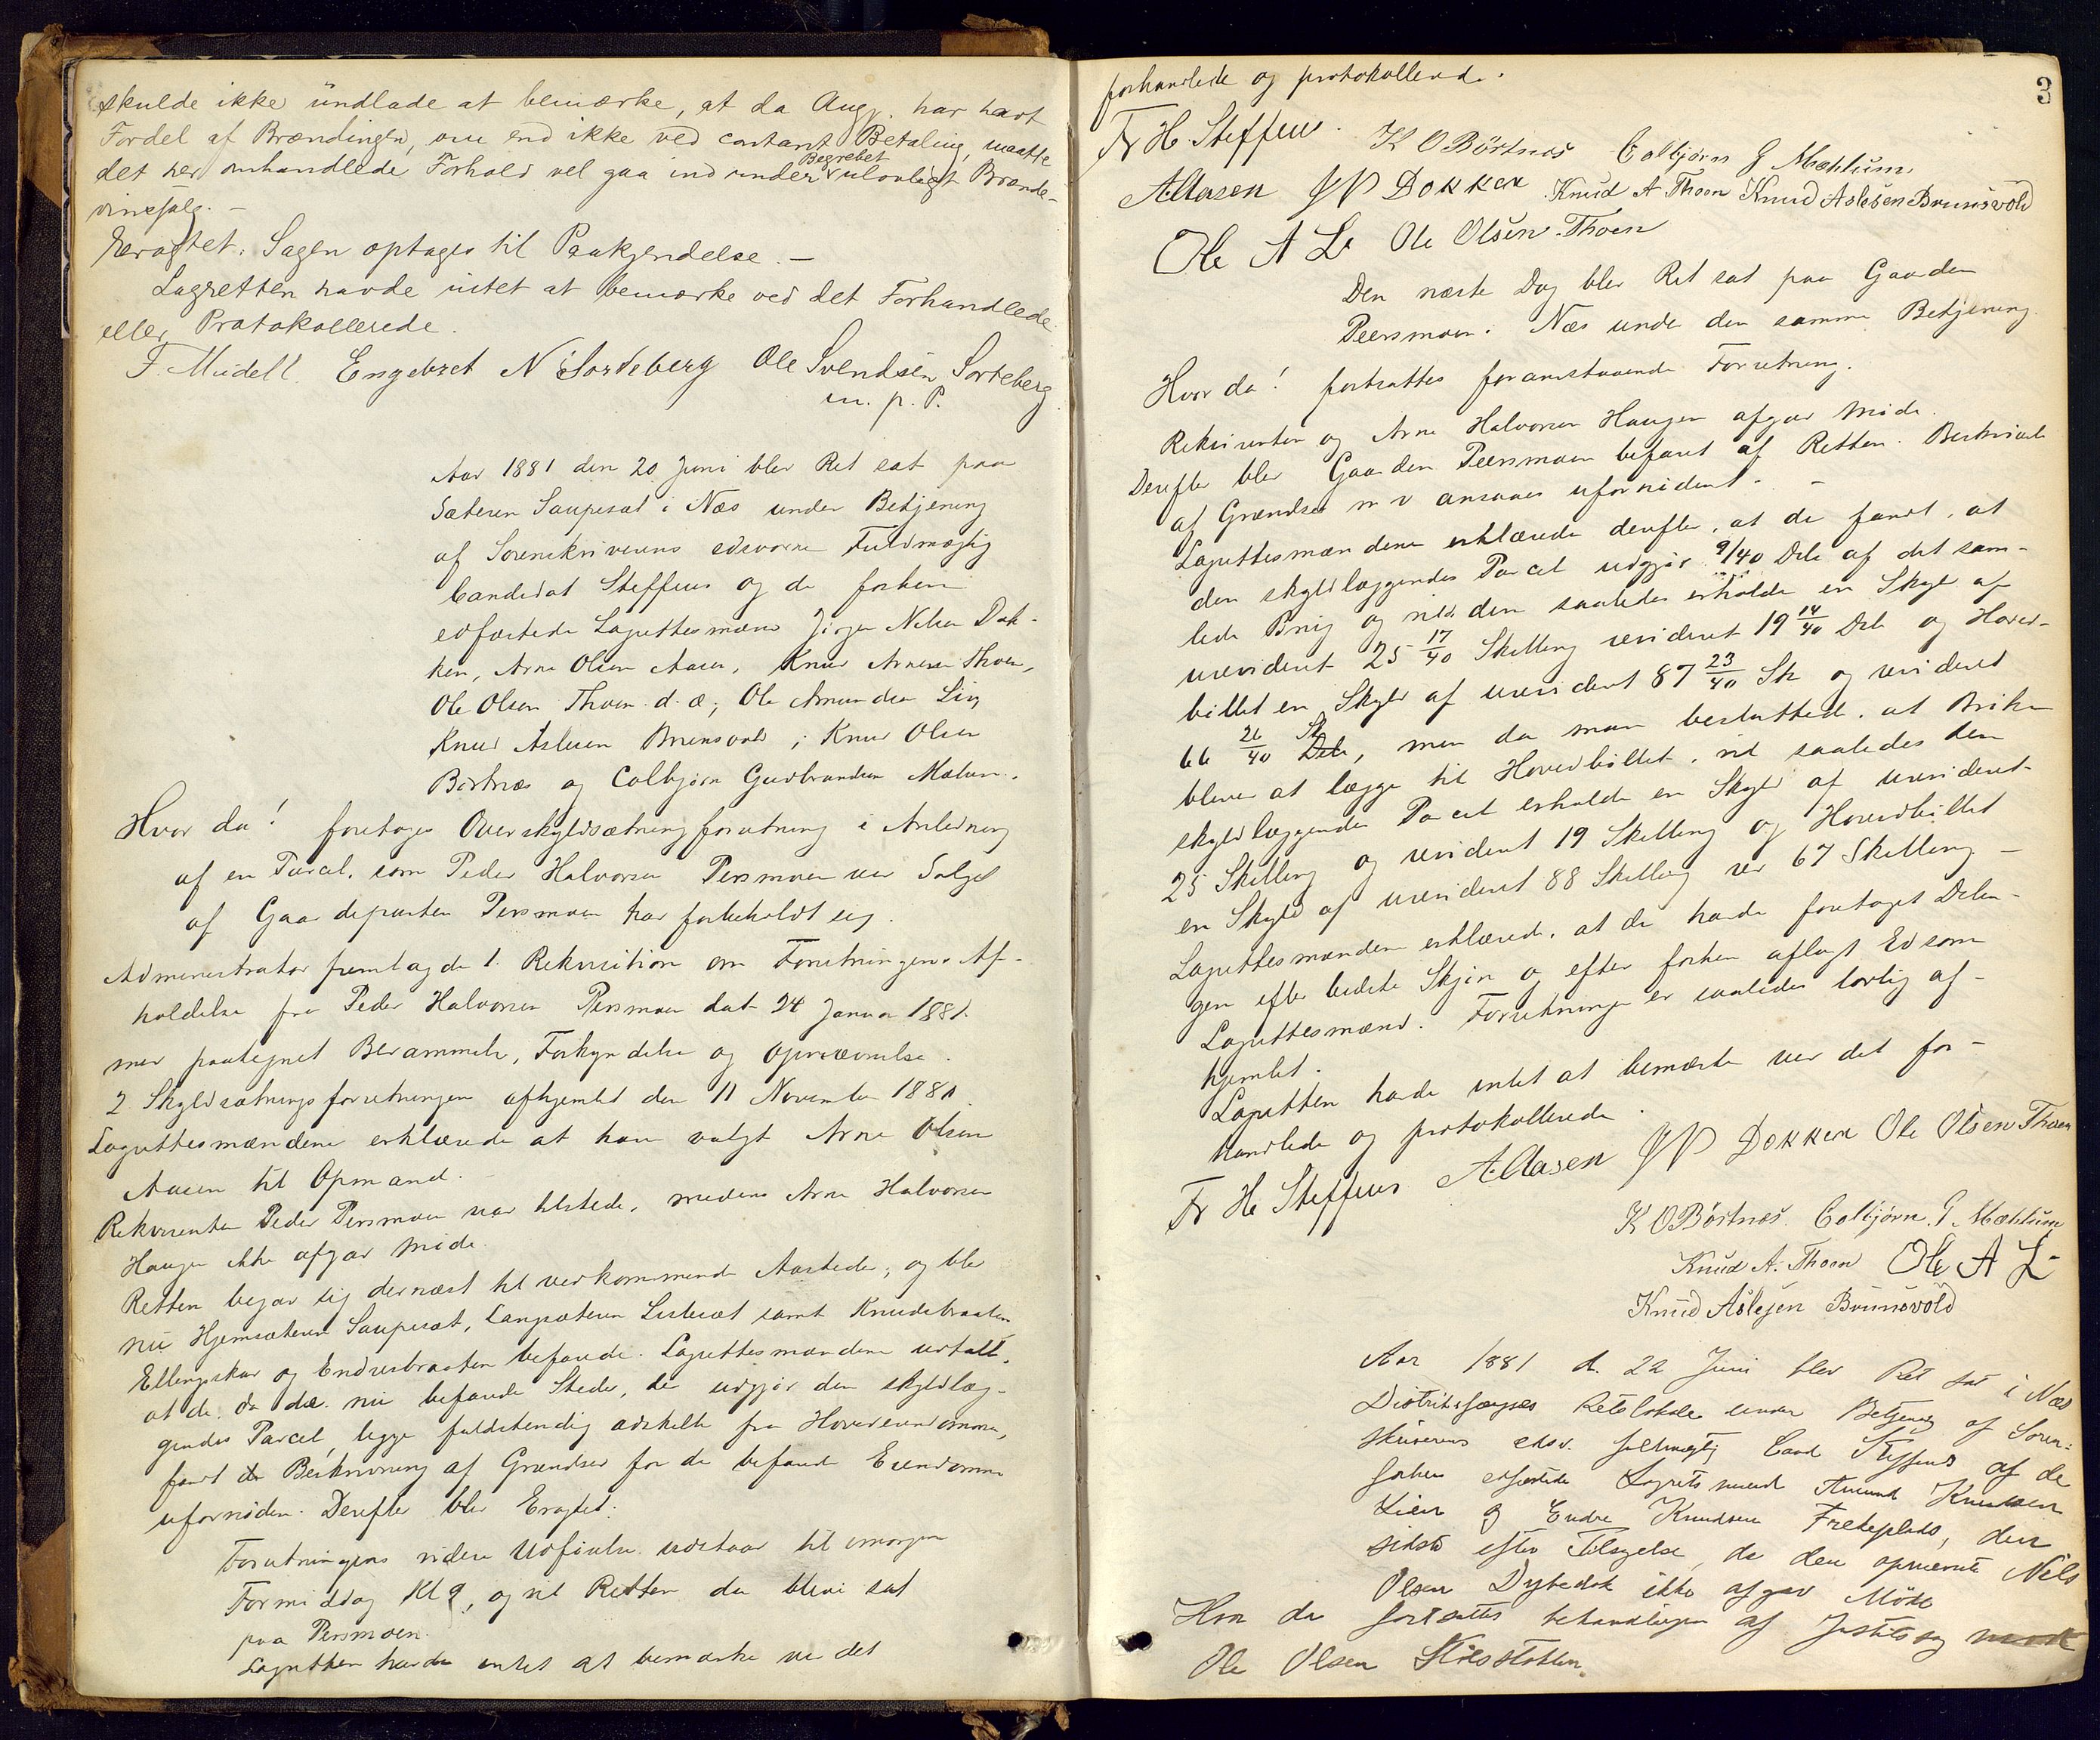 skulde ikke undlade at bemærke, at da Angj. har havt
Fordel af Brændingen, om end ikke ved contant Betaling, maatte
det her omhandlede Forhold vel gaa ind under Begrebet ulovligt Brænde-
vinssalg. —
Eragtet: Sagen optages til Paakjendelse. —
Lagretten havde intet at bemærke ved det Forhandlede
eller Protokollerede.
F. Midell. Engebret N Sorteberg Ole Svendsen Sorteberg
m. p. P.
Aar 1881 den 20 Juni blev Ret sat paa
Sæteren Saupesæt i Næs under Betjening
af Sorenskriverens edsvorne Fuldmægtig
Candidat Steffens og de forhen
edfæstede Lagrettesmænd Jørgen Nilsen Dok-
ken, Arne Olsen Aasen, Knud Arnesen Thoen,
Ole Olsen Thoen d. æ, Ole Amundsen Lia,
Knud Aslesen Brunsvold, Knud Olsen
Børtnæs og Colbjørn Gudbrandsen Mælum.
Hvor da! foretoges Overskyldsætningsforretning i Anledning
af en Parcel, som Peder Halvorsen Persmoen ved Salget
af Gaardeparten Persmoen har forbeholdt sig.
Administrator fremlagde 1. Rekvisition om Forretningens Af-
holdelse fra Peder Halvorsen Persmoen dat 24 Januar 1881.
med paategnet Berammelse, Forkyndelse og Opnævnelse.
2 Skyldsætningsforretningen afhjemlet den 11 November 1880.
Lagrettesmændene erklærede at have valgt Arne Olsen
Aasen til Opmand.
Rekvirenten Peder Persmoen var tilstede, medens Arne Halvorsen
Haugen ikke afgav Møde.
Retten begav sig dernæst til vedkommende Aasteder, og blev
nu Hjemsæteren Saupesæt, Langsæteren Lislesæt samt Knudsbraaten
Ellingskar og Endresbraaten befarede. Lagrettesmændene udtalte,
at de, da de nu befarede Steder, der udgjør den skyldlæg-
gendes Parcel, ligge fuldstændig adskilte fra Hovedeiendommen,
fandt Beskrivning af Grændser for de befarede Eiendomme
ufornøden. Derefter blev Eragtet:
Forretningens videre Udførelse udstaar til imorgen
Formiddag Kl 9, og vil Retten da blive sat
paa Persmoen.
Lagretten havde intet at bemærke ved det
3
forhandlede og protokollerede.
Fr H. Steffens. K O Börtnæs Colbjörn G Mæhlum.
A. Aasen J N Dokken Knud A Thoen Knud Aslesen Brunsvold
Ole A Li Ole Olsen Thoen
Den næste Dag blev Ret sat paa Gaarden
Peersmoen i Næs under den samme Betjening.
Hvor da! fortsattes foranstaaende Forretning.
Rekvirenten og Arne Halvorsen Haugen afgav Møde.
Derefter blev Gaarden Peersmoen befaret af Retten. Beskrivelse
af Grændser m v ansaaes ufornødent. —
Lagrettesmændene erklærede derefter, at de fandt, at
den skyldlæggendes Parcel udgjør 9/40 Dele af det sam-
lede Brug og vilde den saaledes erholde en Skyld af
urevideret 25 17/40 Skilling revideret 19 14/40 Dele og Hoved-
bøllet en Skyld af urevideret 87 23/40 Sk og revideret
66 26/40 Sk, men da man besluttede, at Brøken
bliver at lægge til Hovedbøllet, vil saaledes den
skyldlæggendes Parcel erholde en Skyld af urevideret
25 Skilling og revideret 19 Skilling og Hovedbøllet
en Skyld af urevideret 88 Skilling rev 67 Skilling —
Lagrettesmændene erklærede, at de havde foretaget Delin-
gen efter bedste Skjøn og efter forhen aflagt Ed som
Lagrettesmænd. Forretningen er saaledes lovlig af-
hjemlet.
Lagretten havde intet at bemærke ved det for-
handlede og protokollerede.
Fr H Steffens A. Aasen J N Dokken Ole Olsen Thoen
K O Börtnæs. Colbjörn. G Mæhlum
Knud A. Thoen Ole A Li
Knud Aslesen Brunsvold
Aar 1881 d. 22 Juni blev Ret sat i Næs
Distriktsfængsels Retslokale under Betjening af Soren-
skriverens edsv. fuldmægtig Cand Steffens af de
forhen edfæstede Lagrettesmænd Amund Knudsen
Lien og Endre Knudsen Trekeplads, den
sidste efter Tilsigelse, da den opnævnte Nils
Olsen Dybedok ikke afgav Møde
Hvor da fortsattes behandlingen af Justitssag mod
Ole Olsen